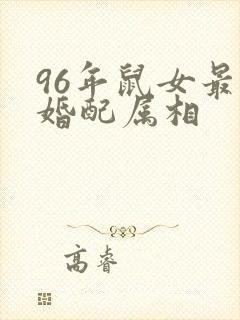 96年鼠女最
婚配属相
高睿